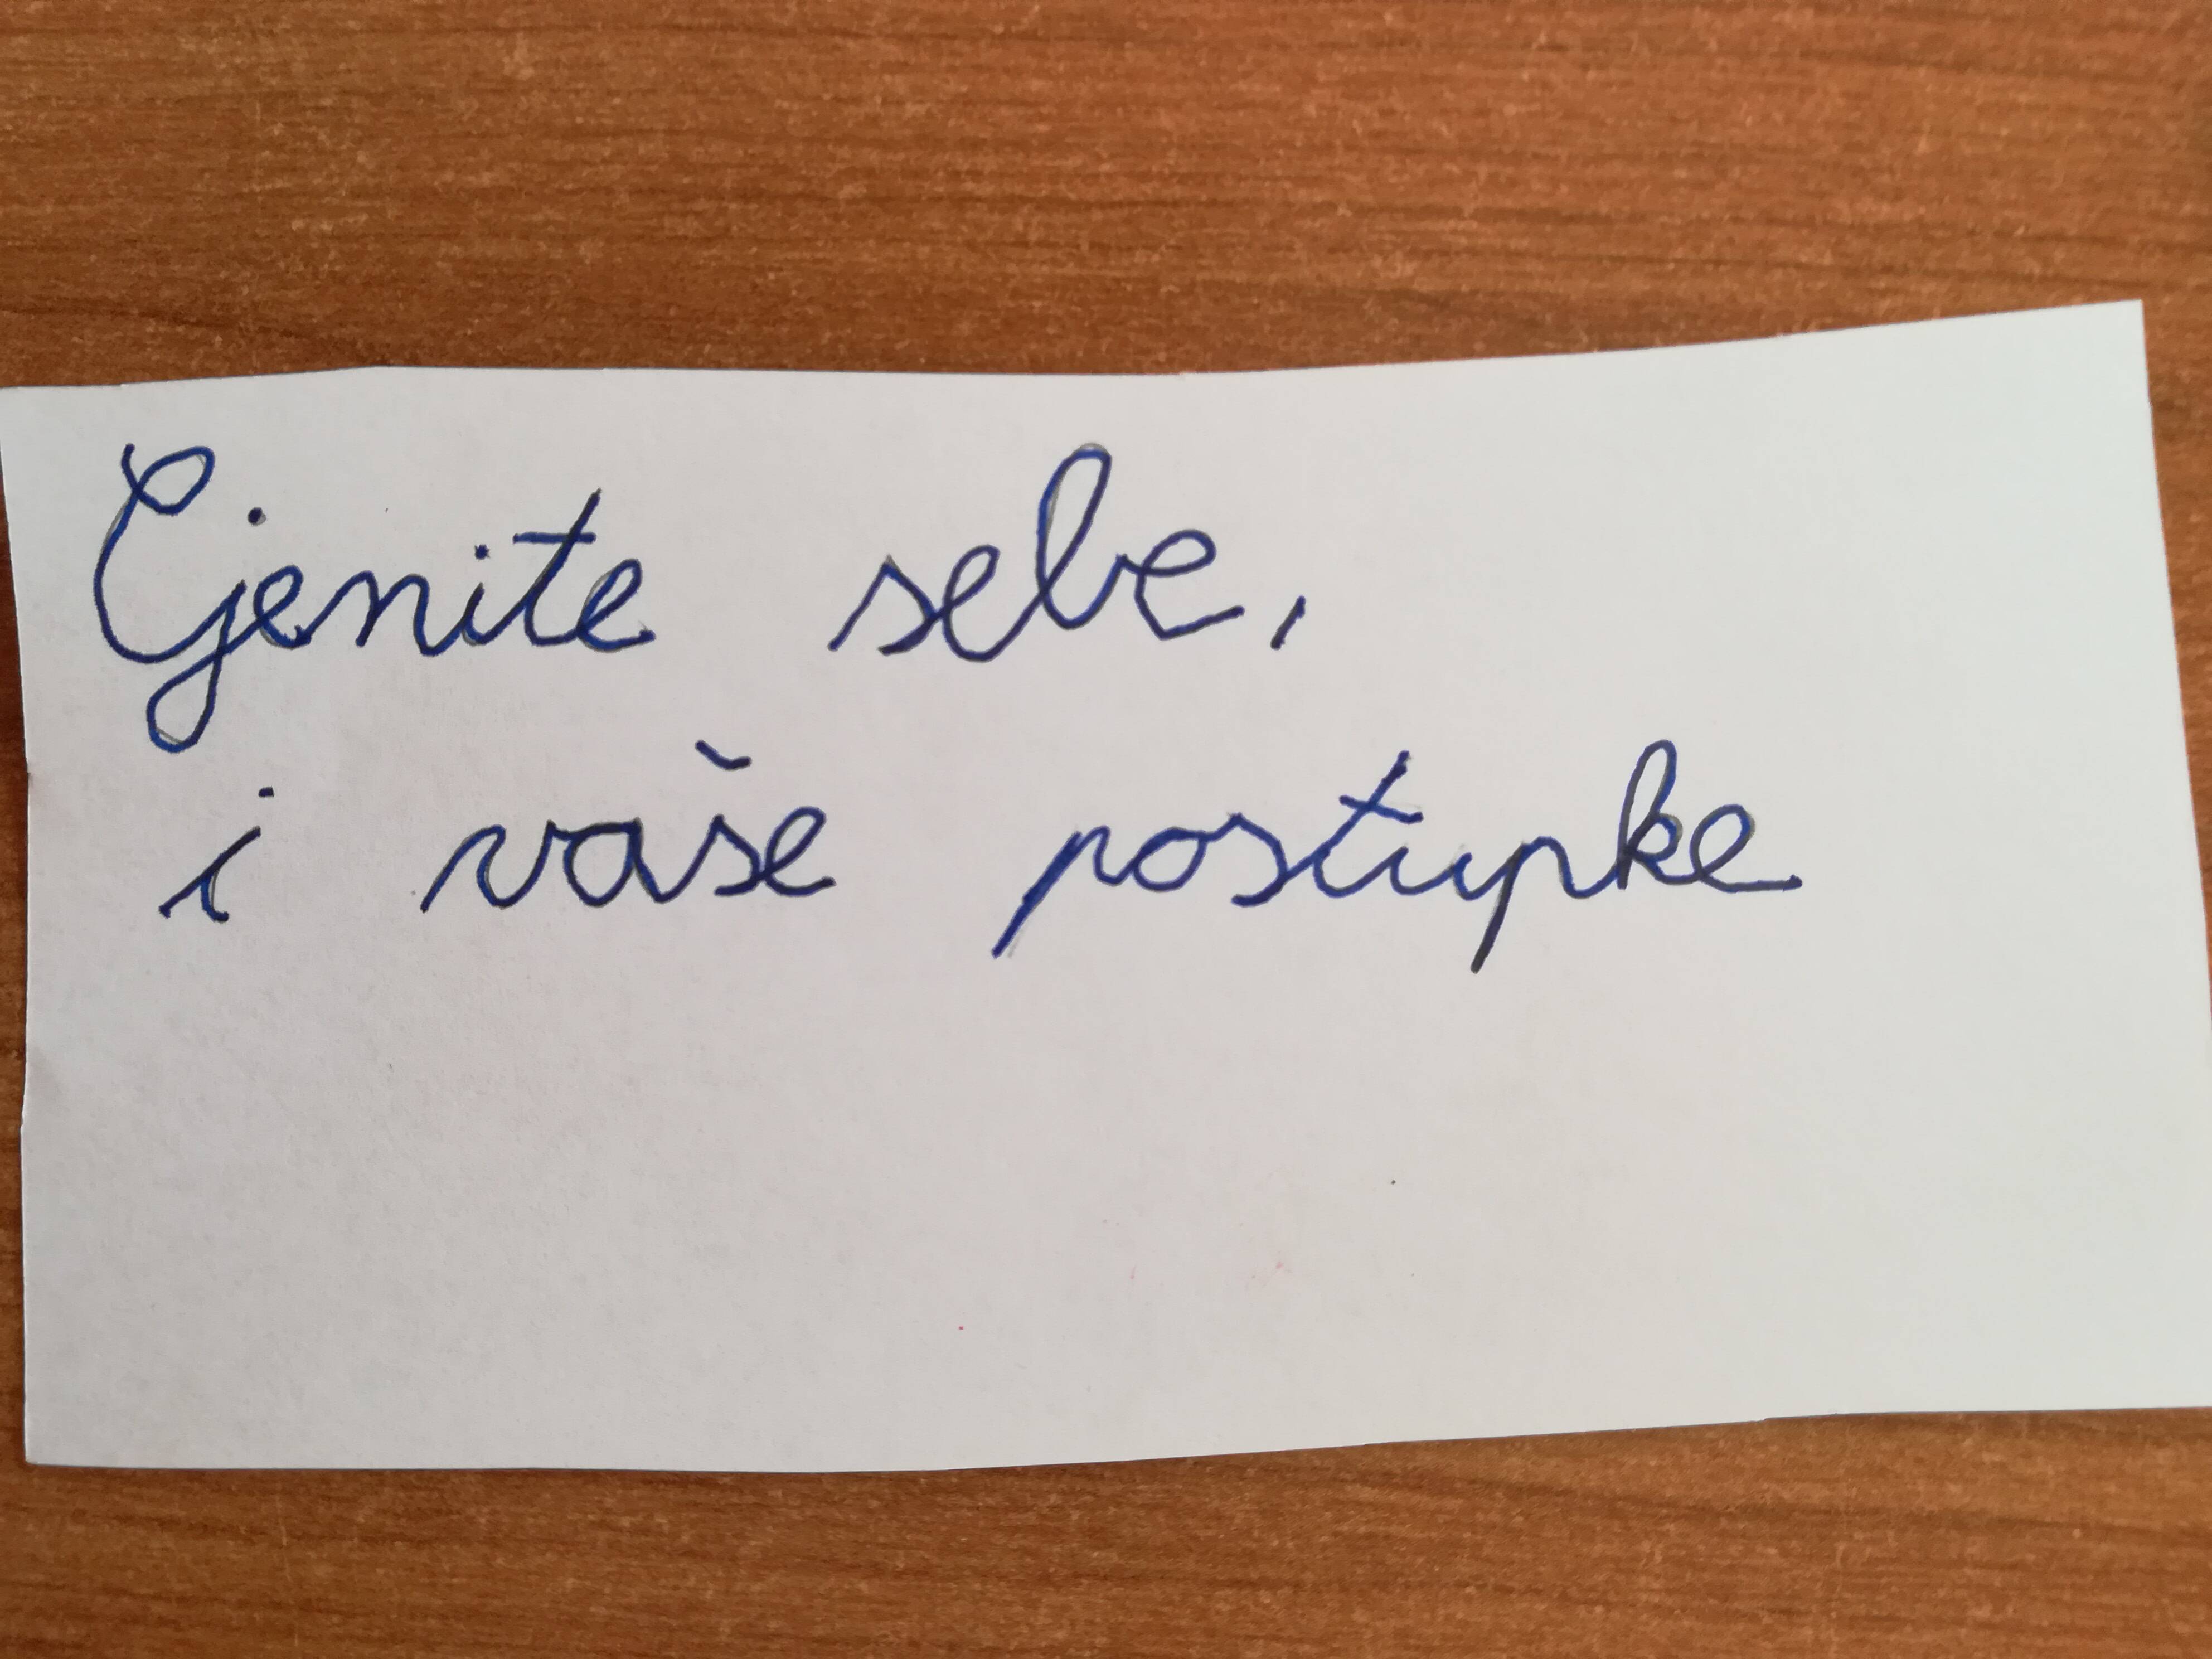 Cjenite sebe,
i vaše postupke